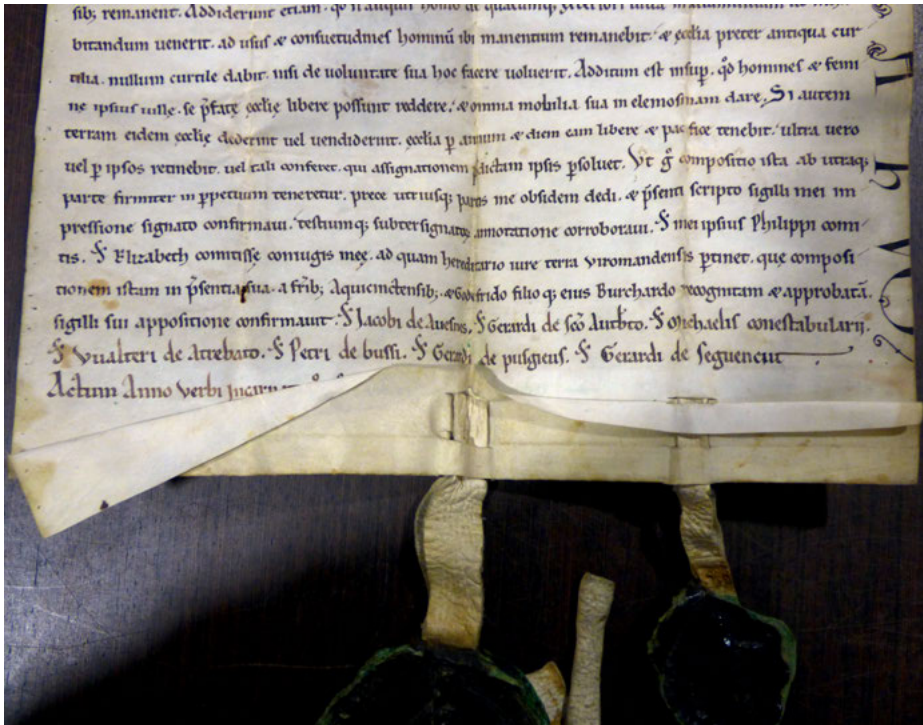 sib; remanent. Addiderunt etiam. qd
bitandum uenerit. ad usus & consuetudines hominū ibi manentium remanebit. & ęcclia preter antiqua cur
tilia. nullum curtile dabit. nisi de uoluntate sua hoc facere uoluerit. Additum est insup. qd homines & femi
ne ipsius uille. se p̄fate ęcclię libere possunt reddere. & omnia mobilia sua in elemosinam dare. Si autem
terram eidem ęcclię dederint uel uendiderint. ęcclia p annum & diem eam libere & pacifice tenebit. ultra uero
uel p ipsos retinebit. uel tali conferet. qui assignationem p̄dictam ipsis psoluet. Vt g̊ compositio ista ab utraq;
parte firmiter in ppetuum teneretur. prece utriusq; partis me obsidem dedi. & p̄senti scripto sigilli mei im
pressione signato confirmaui. testiumq; subtersignata annotatione corroboraui. S̄ mei ipsius Philippi comi
tis. S̄ Elizabeth comitisse coniugis meę. ad quam hereditario iure terra Viromandensis ptinet. quę composi
tionem istam in p̄sentia sua. a frīb; Aquicinctensib; & Godefrido filio q; eius Burchardo recognitam & approbatā.
sigilli sui appositione confirmauit. S̄ Jacobi de Auesnis. S̄ Gerardi de sc̄o Autb̄to. S̄ Michaelis conestabularii.
S̄ Vualteri de Atrebato. S̄ Petri de bussi. S̄ Gerardi de pusgieus. S̄ Gerardi de Seguencut
Actum Anno Verbi Incarnat